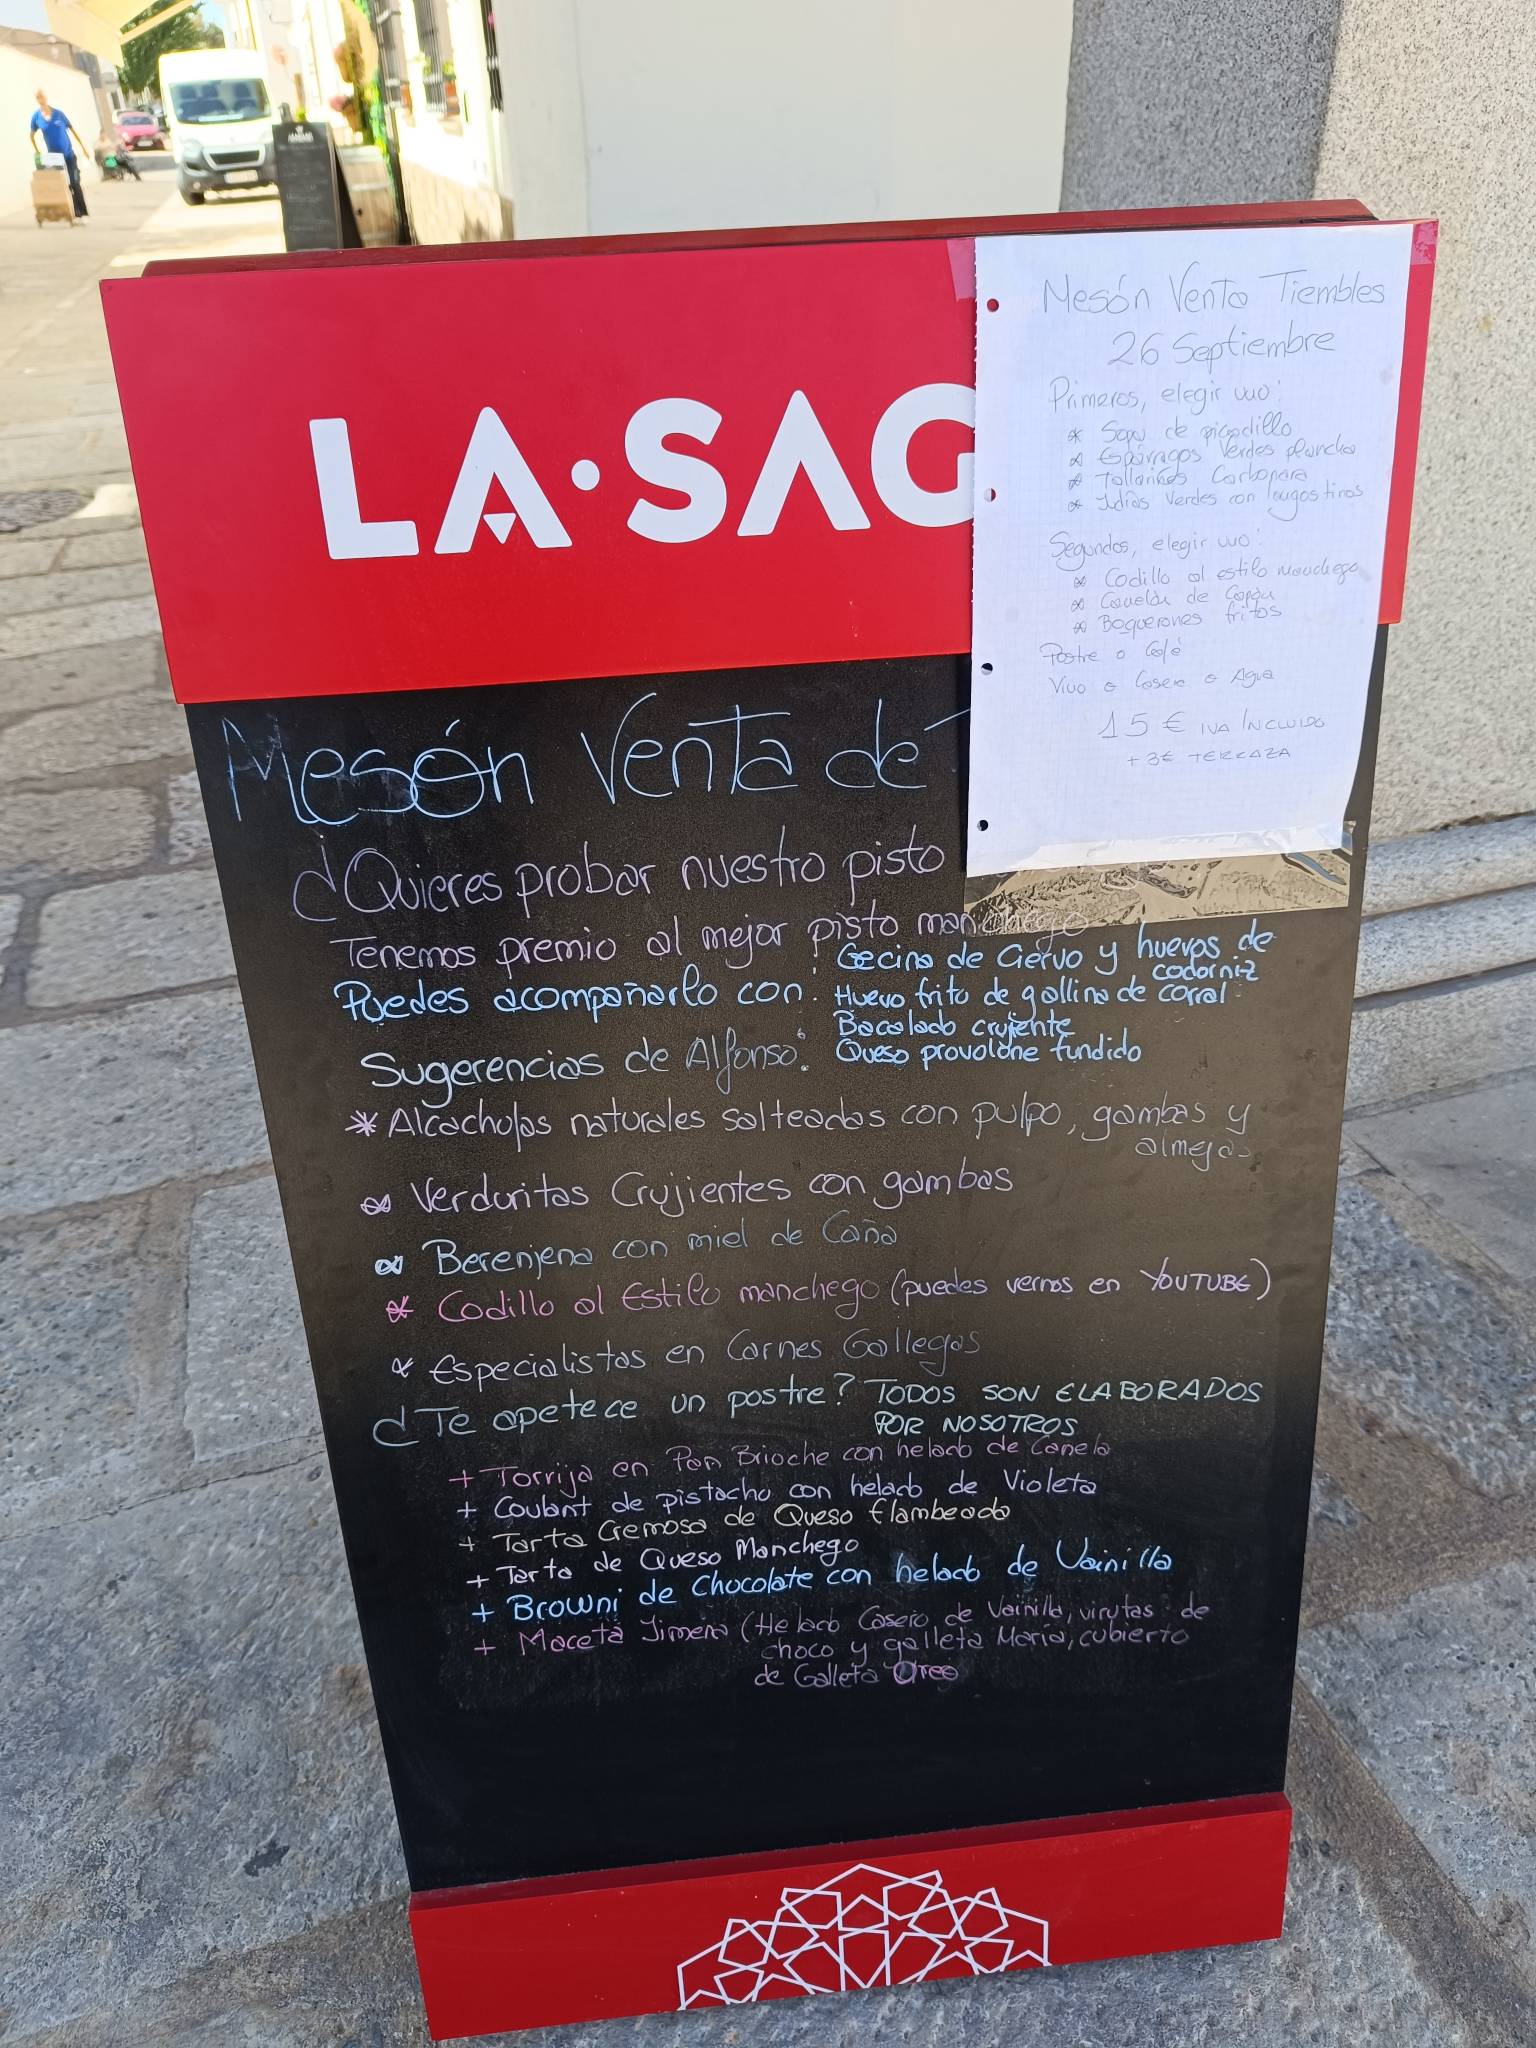 LA·SAG
Mesón Venta Tiembles
26 Septiembre
Primeros, elegir uno:
* Sopa de picadillo
* Espárragos Verdes plancha
* Tallarines Carbonara
* Judías Verdes con langostinos
Segundos, elegir uno:
* Codillo al estilo manchego
* Canelón de Capón
* Boquerones fritos
Postre o Café
Vino o Casera o Agua
15 € IVA INCLUIDO
+ 3€ TERRAZA
Mesón Venta de
¿Quieres probar nuestro pisto
Tenemos premio al mejor pisto manchego
Puedes acompañarlo con:
Cecina de Ciervo y huevos de
codorniz
Huevo frito de gallina de corral
Bacalado crujiente
Queso provolone fundido
Sugerencias de Alfonso:
* Alcachofas naturales salteadas con pulpo, gambas y
almejas
* Verduritas Crujientes con gambas
* Berenjena con miel de Caña
* Codillo al Estilo manchego (puedes vernos en YOUTUBE)
* Especialistas en Carnes Gallegas
¿Te apetece un postre? TODOS SON ELABORADOS
POR NOSOTROS
+ Torrija en Pan Brioche con helado de Canela
+ Coulant de pistacho con helado de Violeta
+ Tarta Cremosa de Queso flambeada
+ Tarta de Queso Manchego
+ Browni de Chocolate con helado de Vainilla
+ Maceta Jimena (Helado Casero de Vainilla, virutas de
choco y galleta María, cubierto
de Galleta Oreo